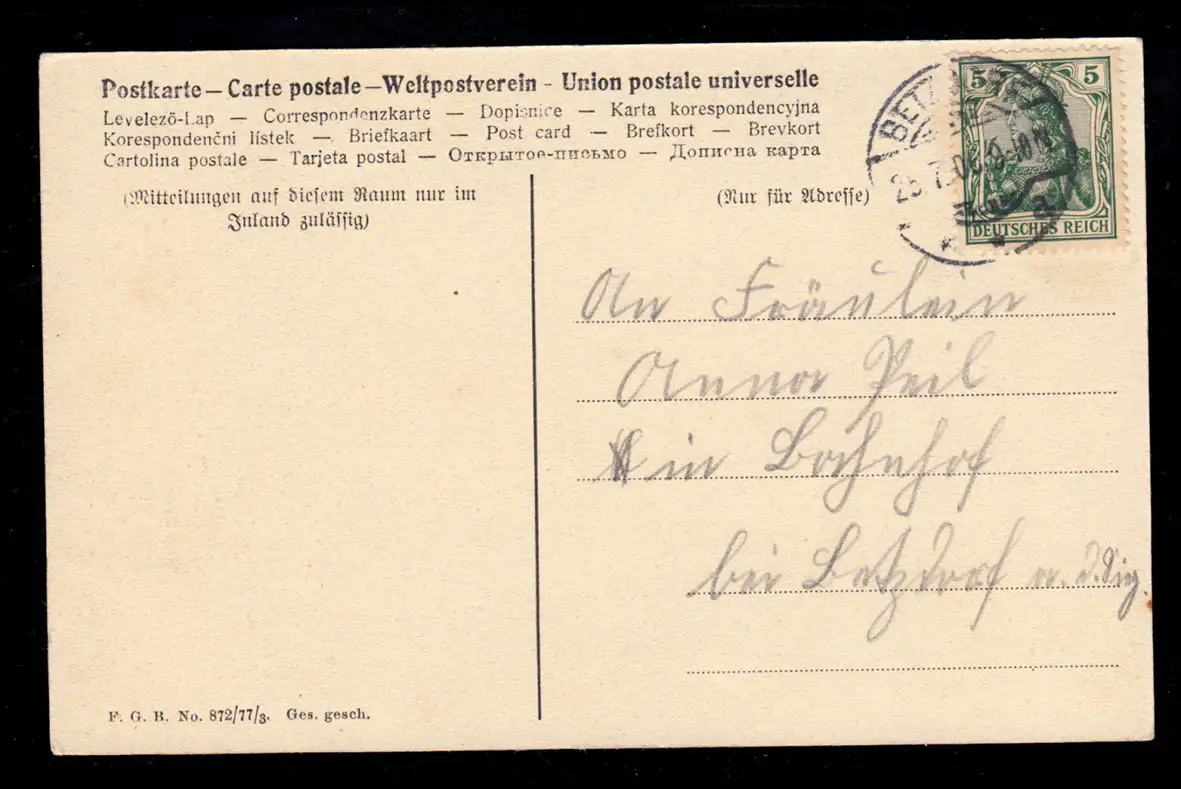 Postkarte — Carte postale — Weltpostverein - Union postale universelle
Levelezö-Lap — Correspondenzkarte — Dopisnice — Karta korespondencyjna
Korespondenční lístek — Briefkaart — Post card — Brefkort — Brevkort
Cartolina postale — Tarjeta postal — Открытое-письмо — Дописна карта
(Mitteilungen auf diesem Raum nur im
Inland zulässig)
(Nur für Adresse)
5 5
DEUTSCHES REICH
25.7.06.9-10N
An Fräulein
Anna Peil
in Bochnhof
bei Betzdorf a. d. Sieg.
F. G. B. No. 872/77/3. Ges. gesch.